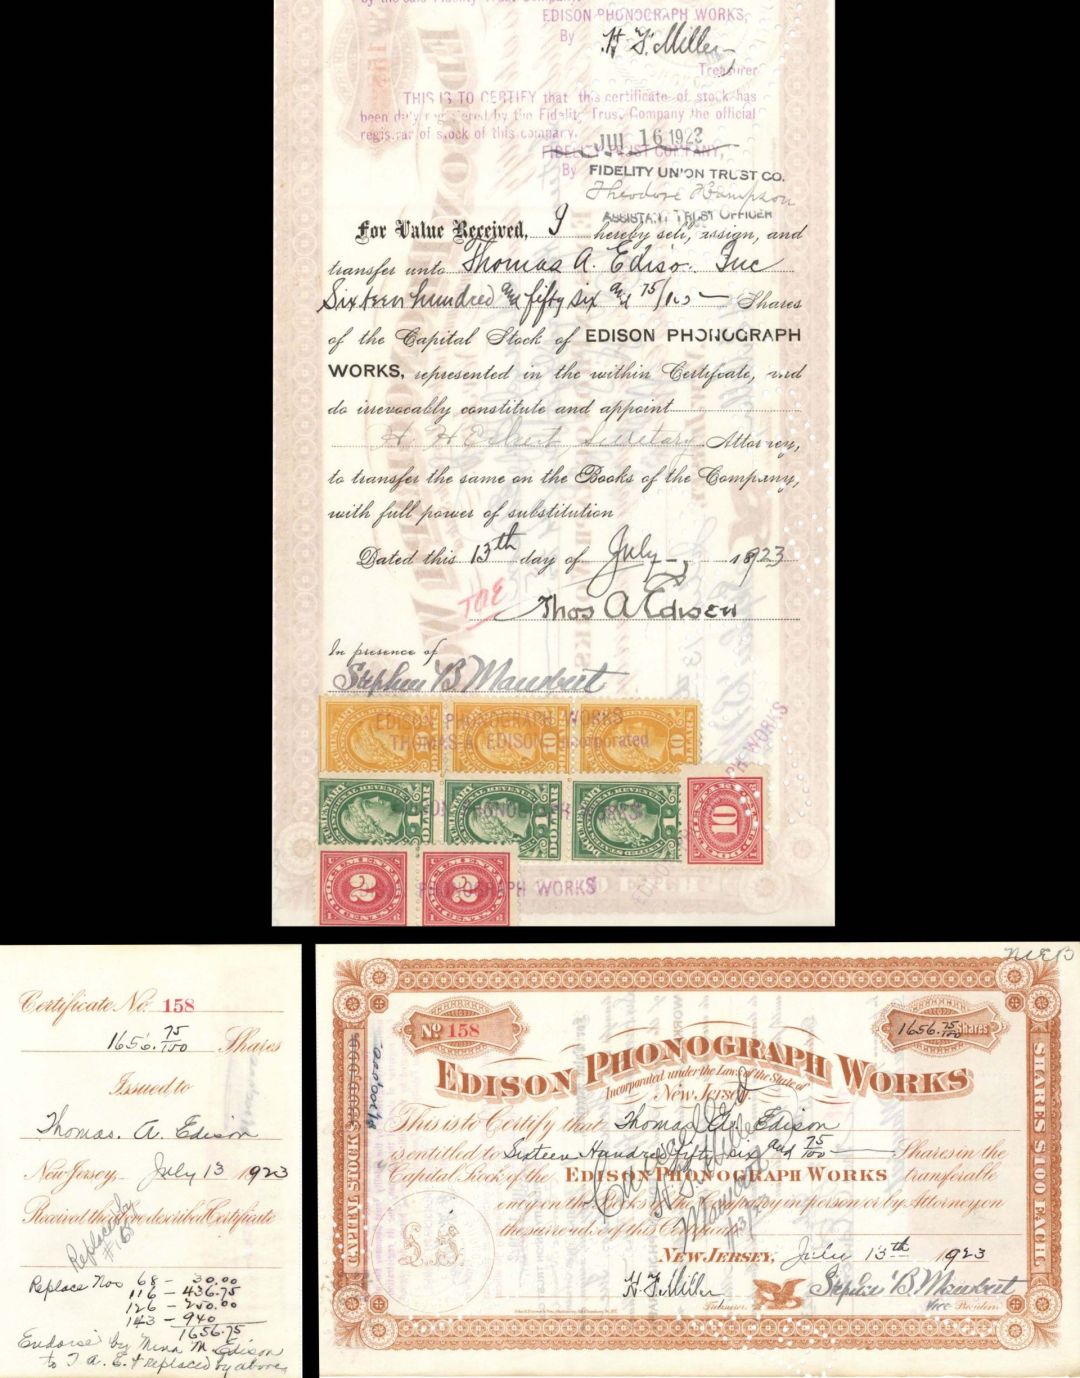 EDISON PHONOGRAPH WORKS,
By H. F. Miller
Treasurer
THIS IS TO CERTIFY that this certificate of stock has
been duly registered by the Fidelity Trust Company the official
registrar of stock of this company.
JUL 16 1923
FIDELITY TRUST COMPANY,
By FIDELITY UNION TRUST CO.
Theodore Hampson
ASSISTANT TRUST OFFICER
For Value Received, I hereby sell, assign, and
transfer unto Thomas A. Edison Inc
Sixteen hundred and fifty six and 75/100 Shares
of the Capital Stock of EDISON PHONOGRAPH
WORKS, represented in the within Certificate, and
do irrevocably constitute and appoint
H. H. Eckert Secretary Attorney,
to transfer the same on the Books of the Company,
with full power of substitution
Dated this 13th day of July 1923
TAE
Thos A Edison
In presence of
Stephen B Mambert
EDISON PHONOGRAPH WORKS
THOMAS A. EDISON, Incorporated
PHONOGRAPH WORKS
10
2 2
PHONOGRAPH WORKS
Certificate No. 158
1656. 75/100 Shares
Issued to
Thomas. A. Edison
New Jersey, July 13 1923
Received the above described Certificate
Replaced by
#165
Replace Nos 68 - 30.00
116 - 436.75
126 - 250.00
143 - 940
1656.75
Endorse by Mina M Edison
to T. A. E. & replaced by above
MEB
No 158
1656. 75/100 Shares
EDISON PHONOGRAPH WORKS
Incorporated under the Laws of the State of
New Jersey.
This is to Certify that Thomas A. Edison
is entitled to Sixteen Hundred fifty six and 75/100 Shares in the
Capital Stock of the EDISON PHONOGRAPH WORKS transferable
only on the Books of the Company in person or by Attorney on
the surrender of this Certificate.
NEW JERSEY, July 13th 1923
H. F. Miller
Treasurer
Stephen B Mambert
Vice President
CAPITAL STOCK
SHARES $100 EACH
Cancelled